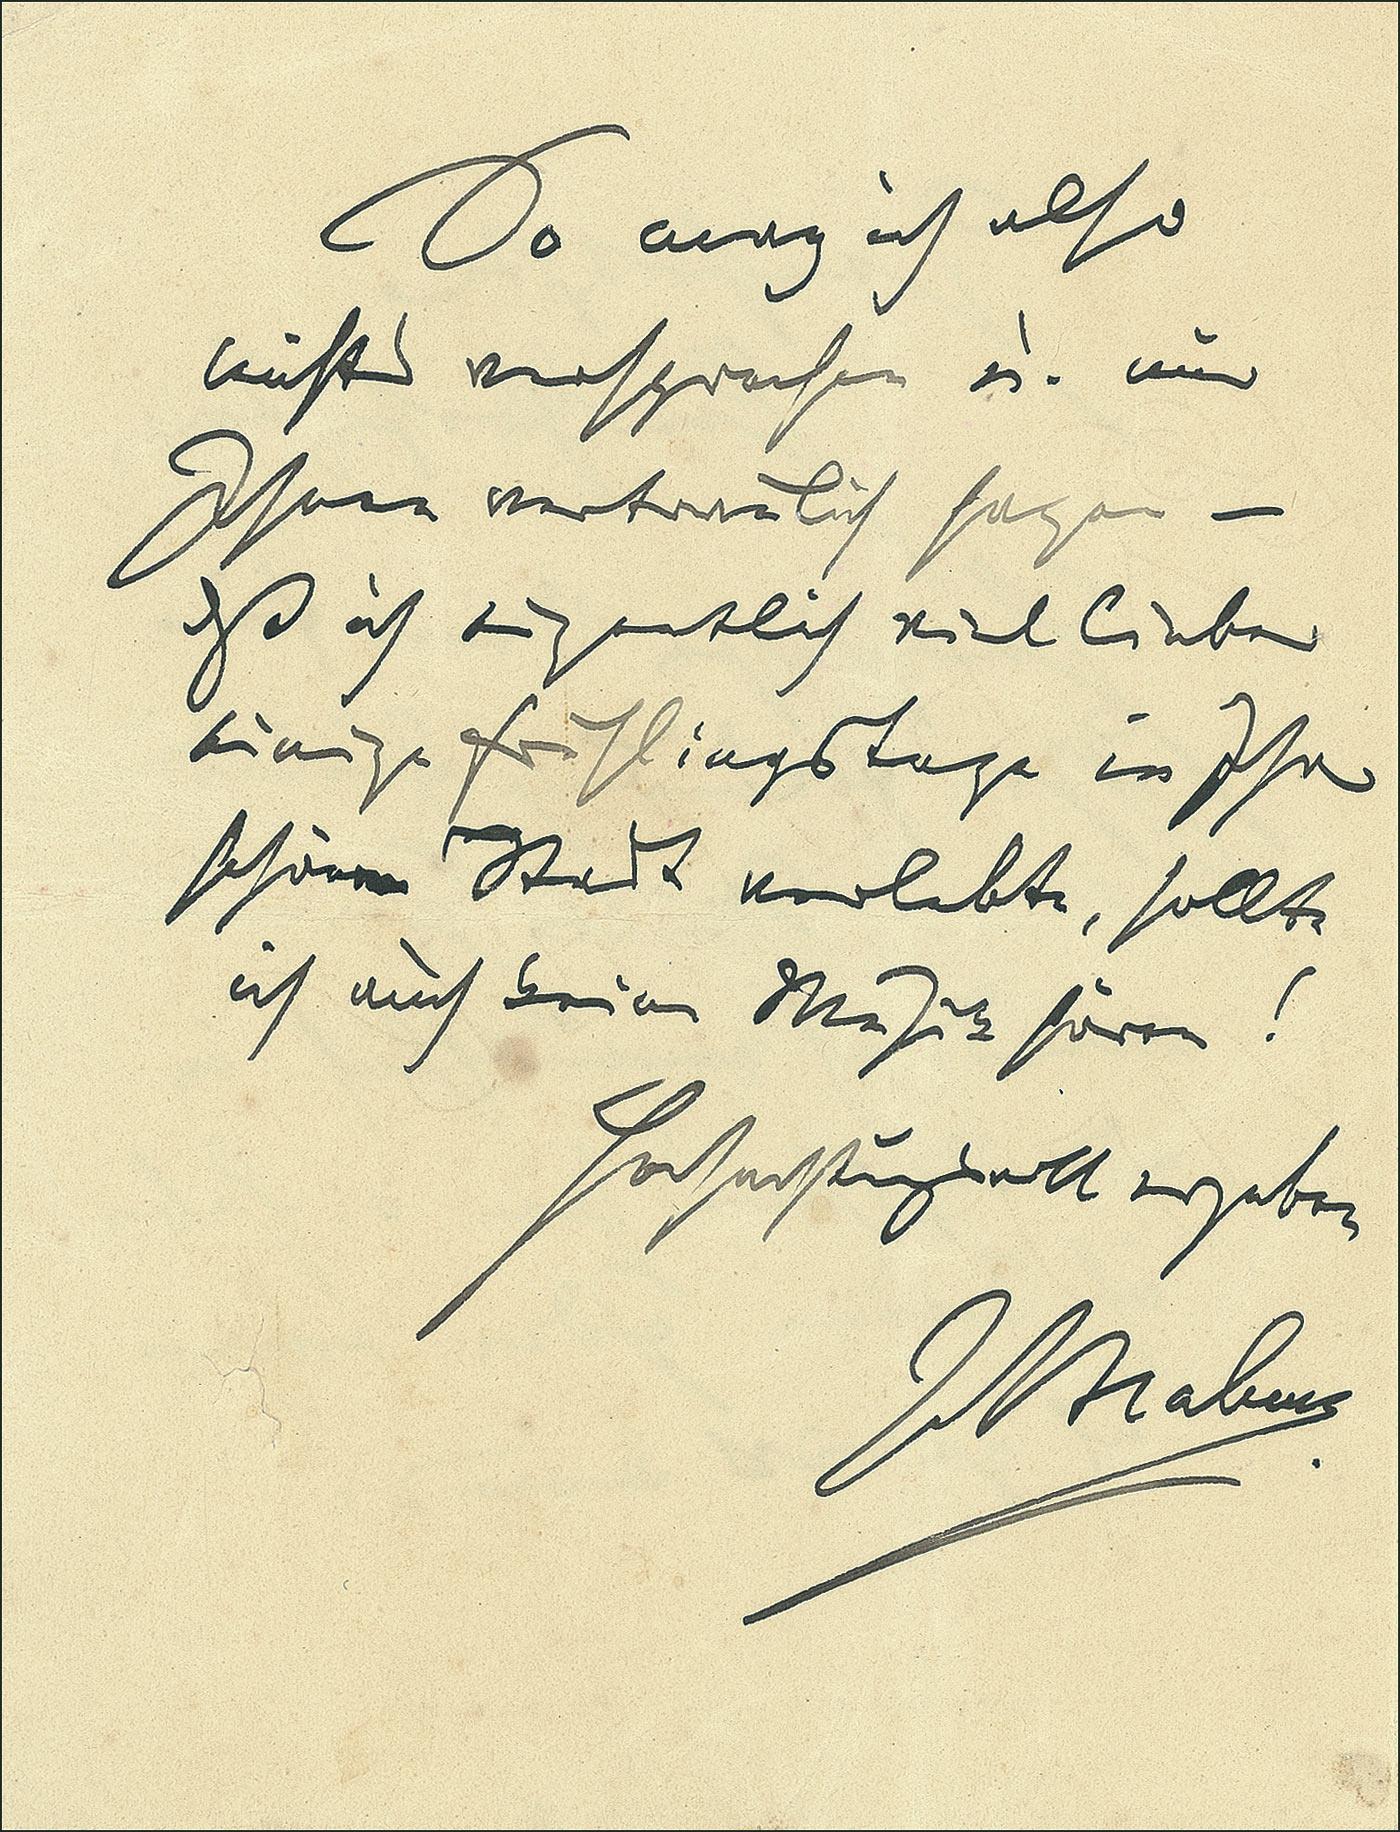 So mag ich also
nichts versprechen u. nur
Ihnen vertraulich sagen —
daß ich eigentlich viel lieber
einige Frühlingstage in Ihrer
schönen Stadt verlebte, sollte
ich auch keine Musik hören!
Hochachtungsvoll ergeben
J. Brahms.